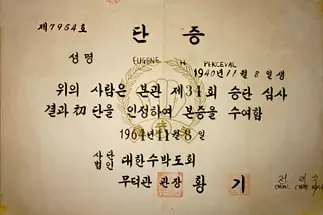 제7954호
단 증
성명 EUGENE H PERCEVAL
1940년11월 8일생
위의 사람은 본관 제31회 승단 심사
결과 初 단을 인정하여 본증을 수여함
1964년11월8일
사단법인 대한수박도회
무덕관 관장 황 기